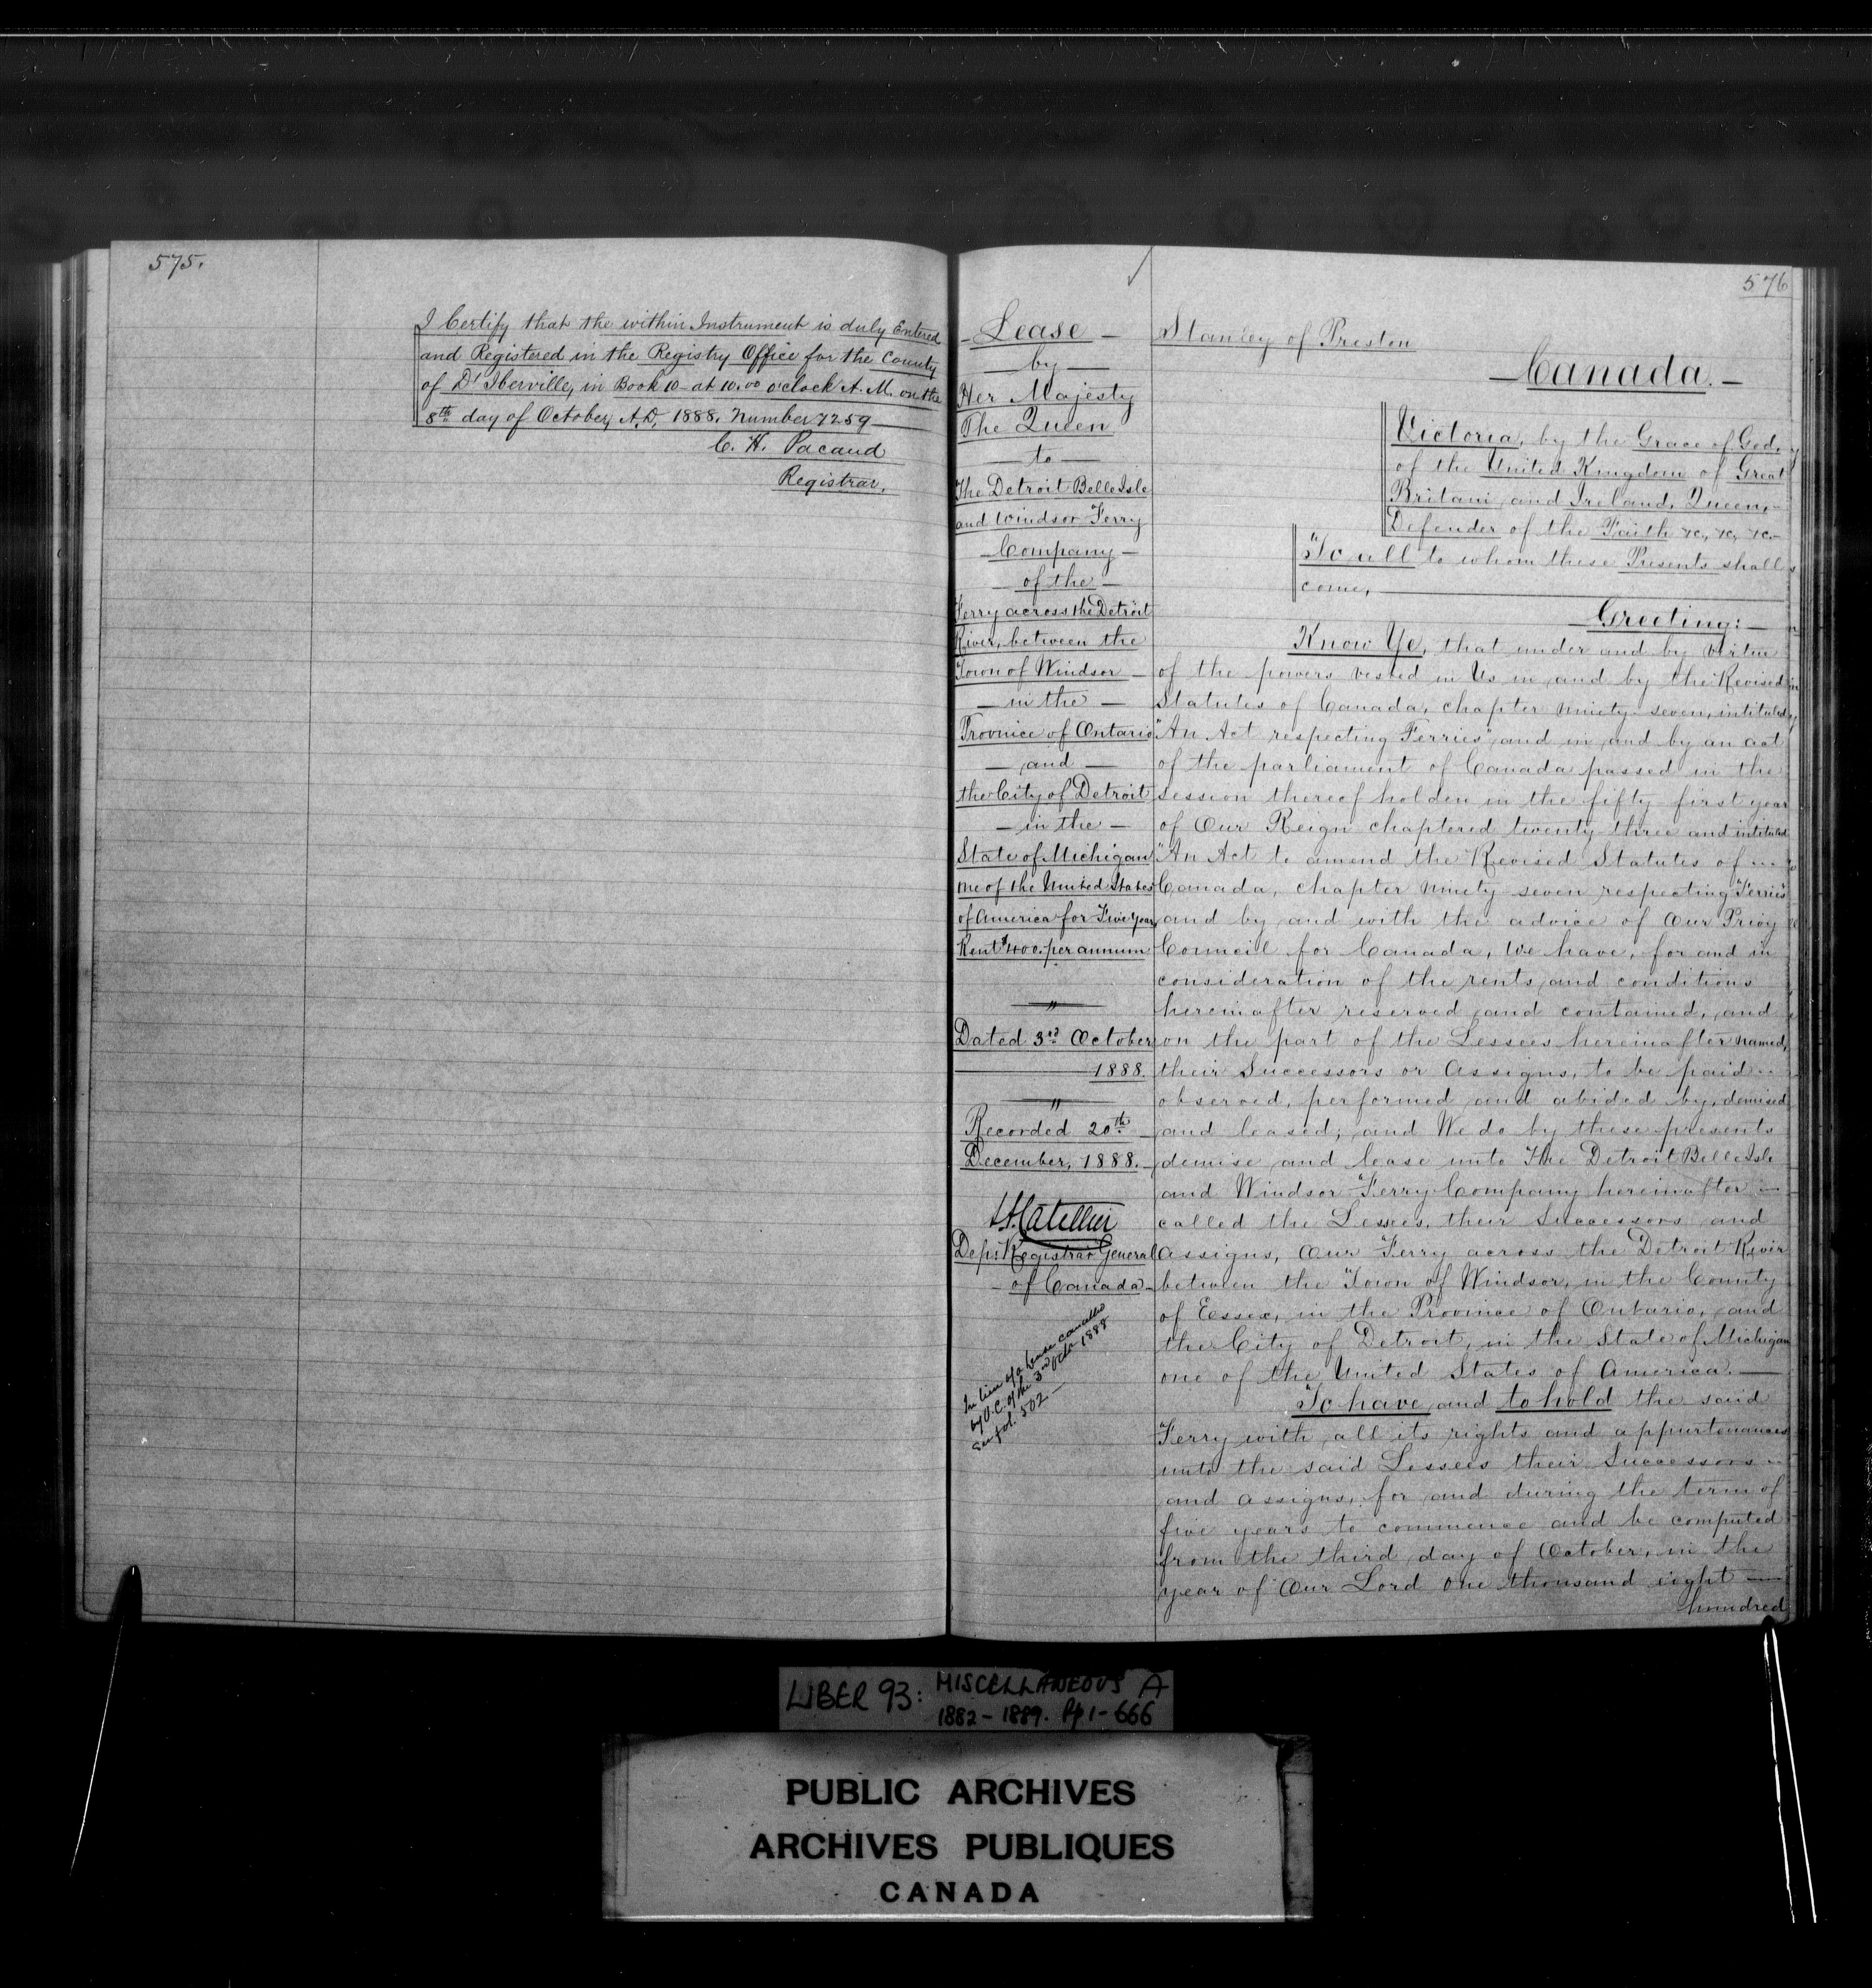 575.
I Certify that the within Instrument is duly Entered
and Registered in the Registry Office for the County
of D'Iberville, in Book 10 at 10.00 o'clock A.M. on the
8th day of October, A.D. 1888. Number 7259
C. H. Pacaud
Registrar.
576
Lease
by
Her Majesty
The Queen
to
The Detroit Belle Isle
and Windsor Ferry
Company
of the
Ferry across the Detroit
River, between the
Town of Windsor
in the
Province of Ontario
and
the City of Detroit
in the
State of Michigan
one of the United States
of America for Five Years
Rent $400. per annum
"
Dated 3rd October
1888.
"
Recorded 20th
December, 1888.
Dep. Registrar General
of Canada
In lieu of a lease cancelled
by O.C. of the 3rd Octr 1888
See fol. 502
Stanley of Preston
Canada.
Victoria, by the Grace of God,
of the United Kingdom of Great
Britain and Ireland, Queen,
Defender of the Faith &c, &c, &c.
To all to whom these Presents shall
come,
Greeting:
Know Ye, that under and by virtue
of the powers vested in Us in and by the Revised
Statutes of Canada, chapter ninety-seven, intituled
"An Act respecting Ferries" and in and by an act
of the parliament of Canada passed in the
session thereof holden in the fifty first year
of Our Reign chaptered twenty-three and intituled
"An Act to amend the Revised Statutes of
Canada, chapter ninety seven respecting Ferries"
and by and with the advice of Our Privy
Council for Canada, We have, for and in
consideration of the rents and conditions
hereinafter reserved and contained, and
on the part of the Lessees hereinafter named,
their Successors or Assigns, to be paid
observed, performed and abided by, demised
and leased; and We do by these presents
demise and lease unto The Detroit Belle Isle
and Windsor Ferry Company hereinafter
called the Lessees, their Successors and
assigns, Our Ferry across the Detroit River
between the Town of Windsor, in the County
of Essex, in the Province of Ontario, and
the City of Detroit, in the State of Michigan
one of the United States of America.
To have and to hold the said
Ferry with all its rights and appurtenances
unto the said Lessees their Successors
and assigns, for and during the term of
five years to commence and be computed
from the third day of October, in the
year of Our Lord one thousand eight
hundred
LIBER 93: MISCELLANEOUS A
1882-1889. Pp 1-666
PUBLIC ARCHIVES
ARCHIVES PUBLIQUES
CANADA